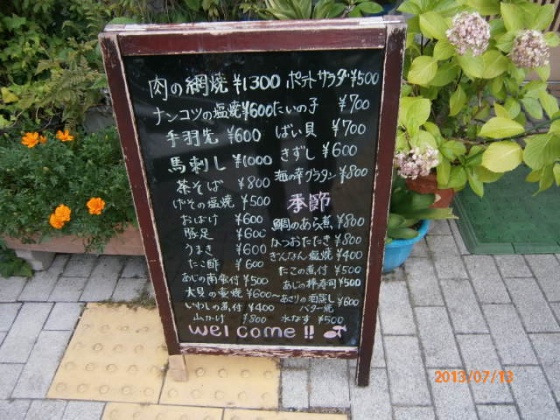 肉の網焼 ¥1300 ポテトサラダ ¥500
ナンコツの塩焼 ¥600 たいの子 ¥700
手羽先 ¥600 ばい貝 ¥700
馬刺し ¥1000 きずし ¥600
茶そば ¥800 海の幸グラタン ¥800
げその塩焼 ¥500 季節
おばけ ¥600 鯛のあら煮 ¥800
豚足 ¥600 かつおたたき ¥800
うまき ¥600 ぎんなん塩焼 ¥400
たこ酢 ¥600 たこの煮付 ¥500
あじの南蛮付 ¥500 あじの棒寿司 ¥500
大貝の壷焼 ¥600〜 あさりの酒蒸し ¥600
いわしの煮付 ¥400 バター焼
山かけ ¥800 水なす ¥500
welcome!!
2013/07/13